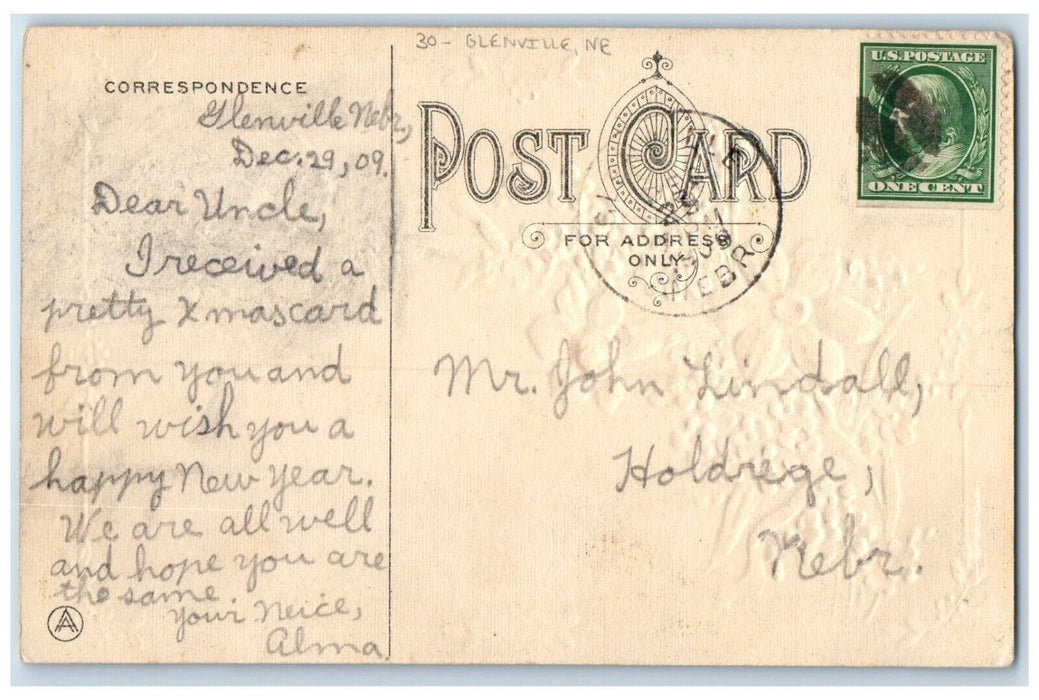 30- GLENVILLE, NE
CORRESPONDENCE
Glenville Nebr,
Dec. 29, 09.
Dear Uncle,
I received a
pretty Xmas card
from you and
will wish you a
happy New Year.
We are all well
and hope you are
the same.
Your Neice,
Alma
AA
POST CARD
FOR ADDRESS
ONLY
NEBR
Mr. John Lindall,
Holdrege,
Nebr.
U.S. POSTAGE
ONE CENT